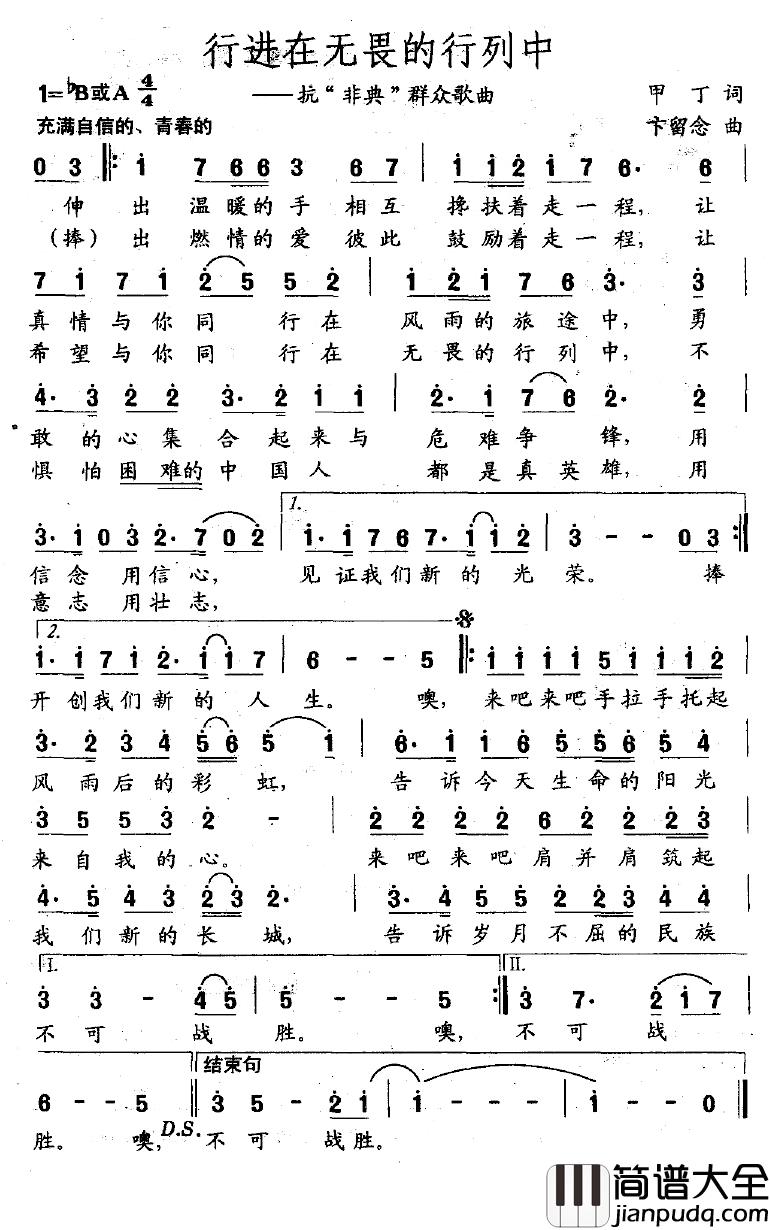 行进在无畏的行列中
1=♭B或A 4/4 ——抗“非典”群众歌曲 甲 丁 词
充满自信的、青春的 卞留念 曲
0 3 ‖: i 7 6 6 3 6 7 | i i 2 i 7 6· 6
伸 出 温 暖 的 手 相 互 搀 扶 着 走 一 程, 让
(捧) 出 燃 情 的 爱 彼 此 鼓 励 着 走 一 程, 让
7 i 7 i 2 5 5 2 | i 2 i 7 6 3· 3
真 情 与 你 同 行 在 风 雨 的 旅 途 中, 勇
希 望 与 你 同 行 在 无 畏 的 行 列 中, 不
4· 3 2 2 3· 2 i i | 2· i 7 6 2· 2
敢 的 心 集 合 起 来 与 危 难 争 锋, 用
惧 怕 困 难 的 中 国 人 都 是 真 英 雄, 用
1.
3· i 0 3 2· 7 0 2 | i· i 7 6 7· i i 2 | 3 - - 0 3 :‖
信 念 用 信 心, 见 证 我 们 新 的 光 荣。 捧
意 志 用 壮 志,
2.
i· i 7 i 2· i i 7 | 6 - - 5 ‖: i i i i 5 i i i 2 |
开 创 我 们 新 的 人 生。 噢, 来 吧 来 吧 手 拉 手 托 起
3· 2 3 4 5 6 5 1 | 6· i i 6 5 5 6 5 4 |
风 雨 后 的 彩 虹, 告 诉 今 天 生 命 的 阳 光
3 5 5 3 2 - | 2 2 2 2 6 2 2 2 3 |
来 自 我 的 心。 来 吧 来 吧 肩 并 肩 筑 起
4· 5 4 3 2 3 2· | 3· 4 5 5 2 2 3 4 4 |
我 们 新 的 长 城, 告 诉 岁 月 不 屈 的 民 族
I. II.
3 3 - 4 5 | 5 - - 5 :‖ 3 7· 2 i 7 |
不 可 战 胜。 噢, 不 可 战
结束句
6 - - 5 ‖ 3 5 - 2 i | i - - - | i - - 0 ‖
胜。 噢, D.S. 不 可 战 胜。
简谱大全
jianpudq.com